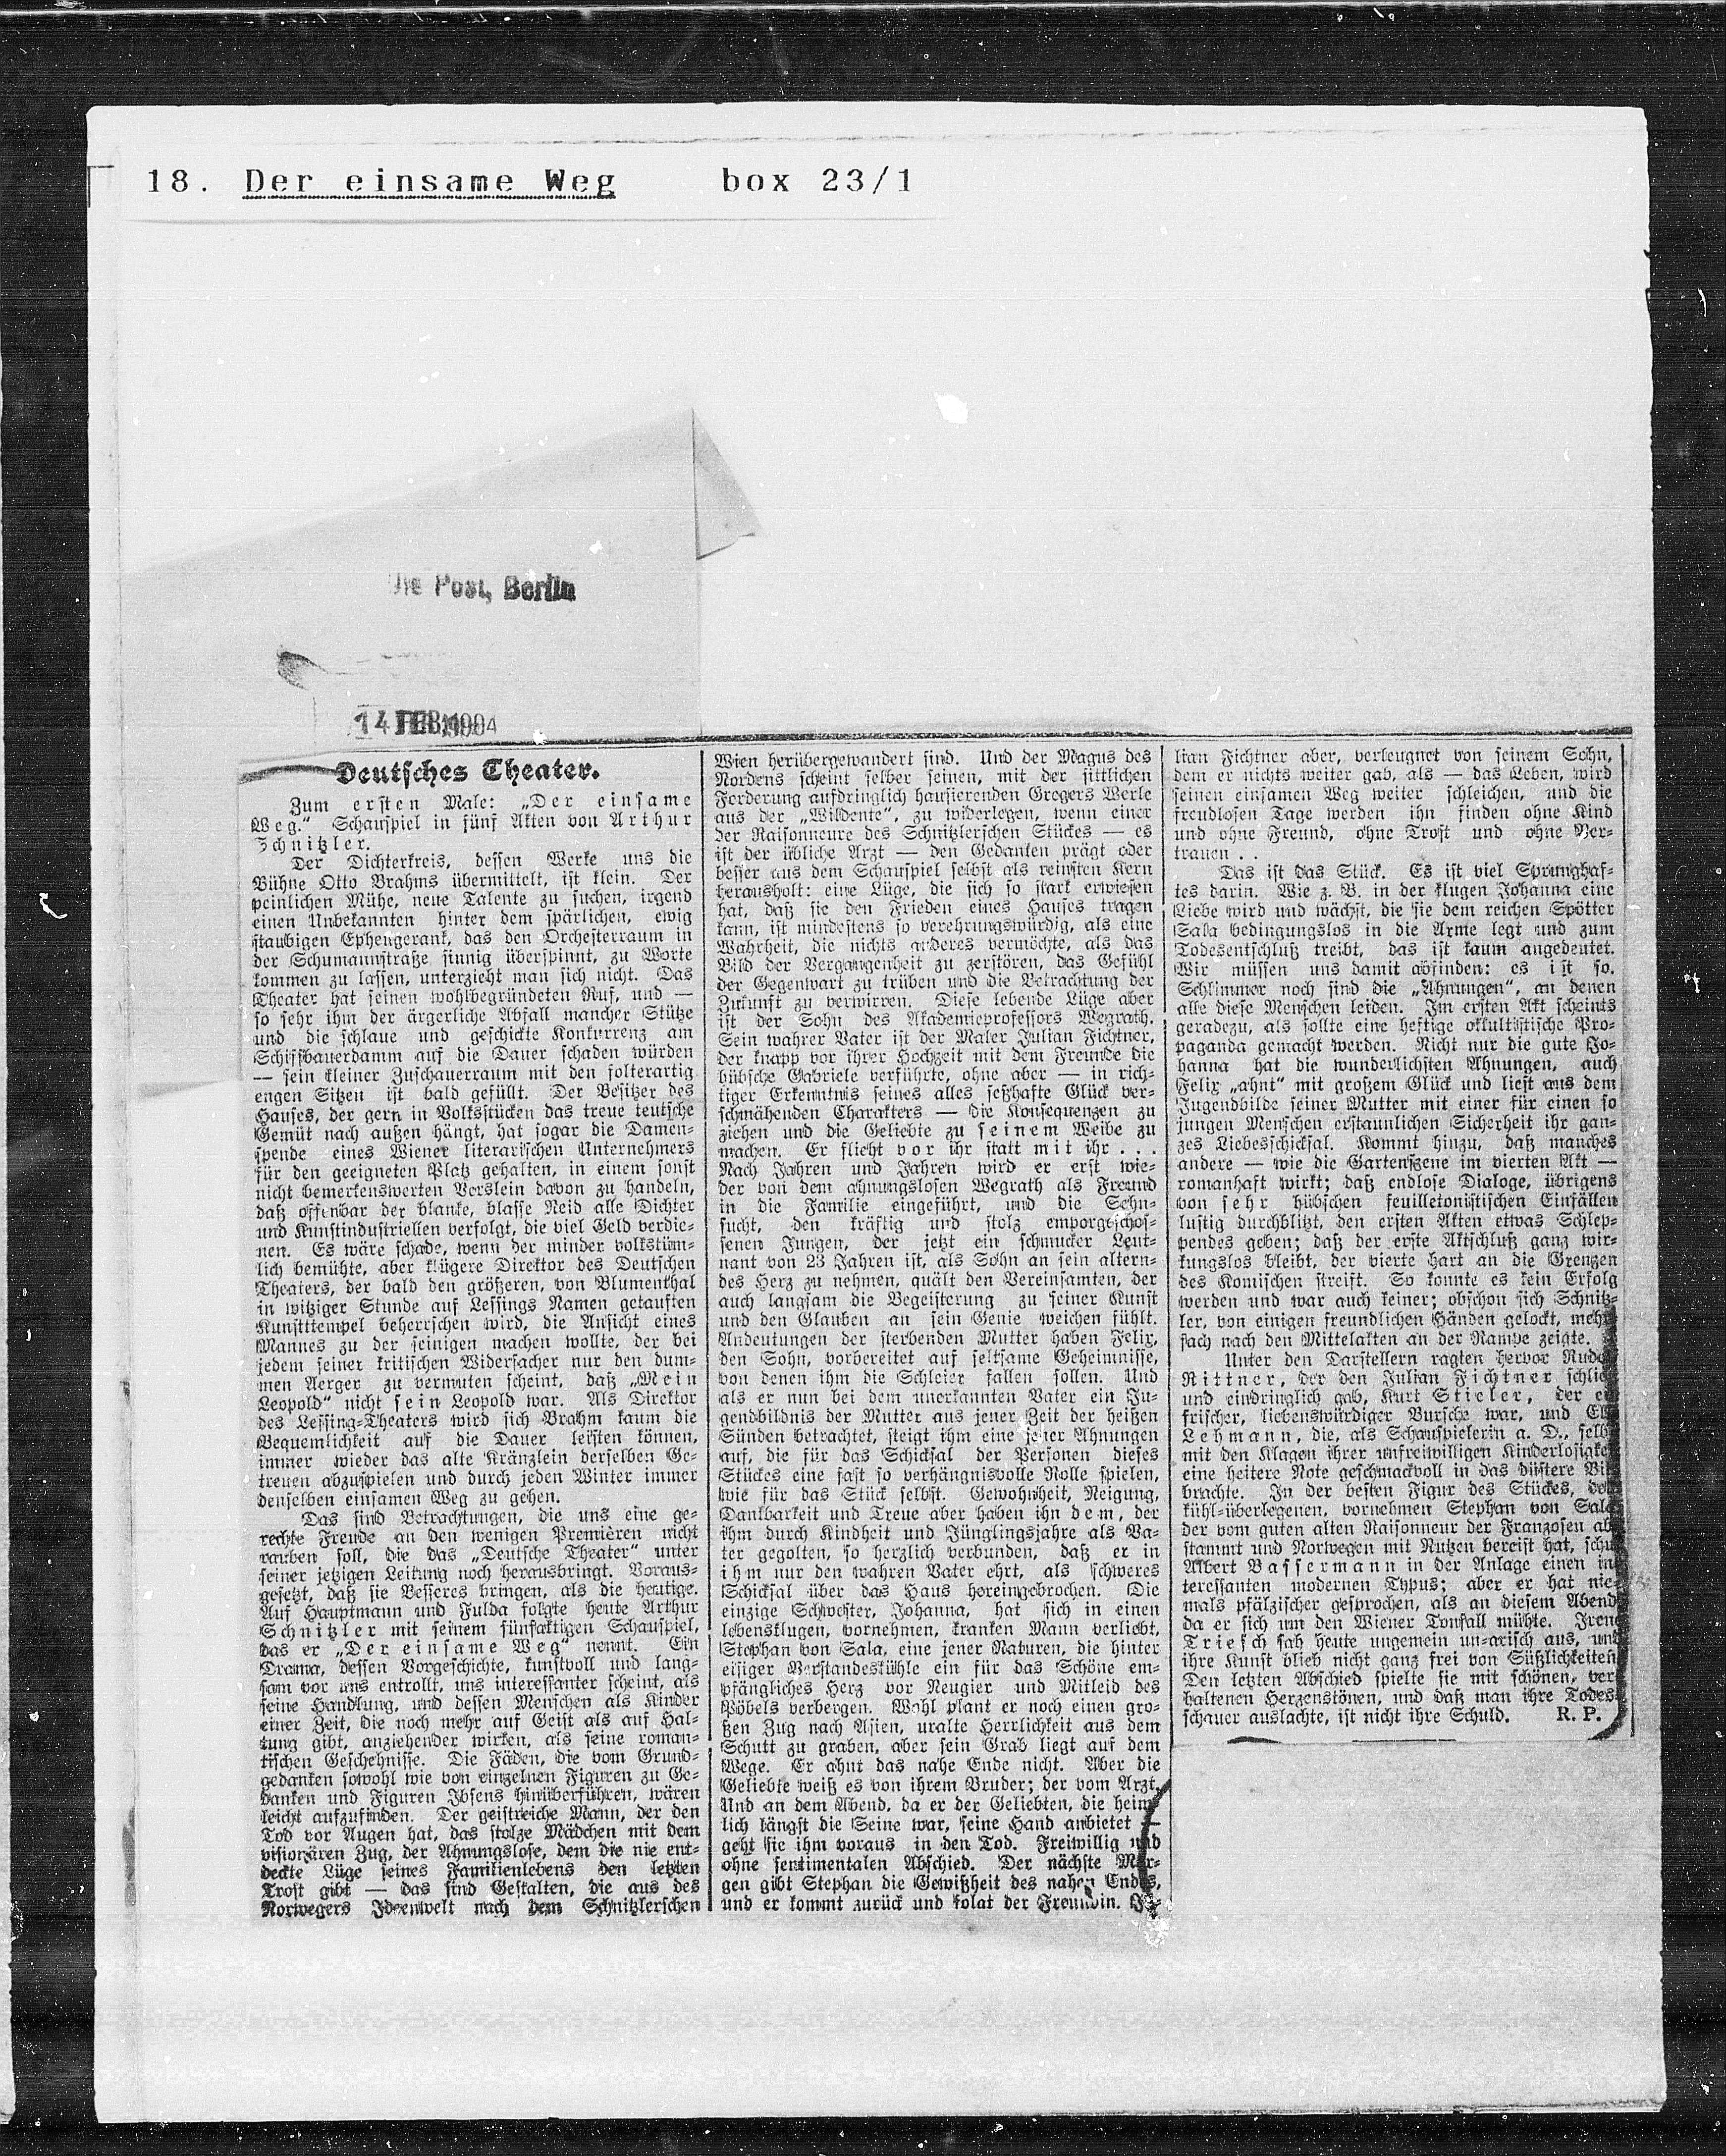 18. Der einsame Weg box 23/1
Die Post, Berlin
14 FEB 1904
Deutsches Theater.
Zum ersten Male: „Der einsame
Weg.“ Schauspiel in fünf Akten von Arthur
Schnitzler.
Der Dichterkreis, dessen Werke uns die
Bühne Otto Brahms übermittelt, ist klein. Der
peinlichen Mühe, neue Talente zu suchen, irgend
einen Unbekannten hinter dem spärlichen, ewig
staubigen Epheugerank, das den Orchesterraum in
der Schumannstraße sinnig überspinnt, zu Worte
kommen zu lassen, unterzieht man sich nicht. Das
Theater hat seinen wohlbegründeten Ruf, und —
so sehr ihm der ärgerliche Abfall mancher Stütze
und die schlaue und geschickte Konkurrenz am
Schiffbauerdamm auf die Dauer schaden würden
— sein kleiner Zuschauerraum mit den folterartig
engen Sitzen ist bald gefüllt. Der Besitzer des
Hauses, der gern in Volksstücken das treue teutsche
Gemüt nach außen hängt, hat sogar die Damen-
spende eines Wiener literarischen Unternehmers
für den geeigneten Platz gehalten, in einem sonst
nicht bemerkenswerten Verslein davon zu handeln,
daß offenbar der blanke, blasse Neid alle Dichter
und Kunstindustriellen verfolgt, die viel Geld verdie-
nen. Es wäre schade, wenn der minder volkstüm-
lich bemühte, aber klügere Direktor des Deutschen
Theaters, der bald den größeren, von Blumenthal
in witziger Stunde auf Lessings Namen getauften
Kunsttempel beherrschen wird, die Ansicht eines
Mannes zu der seinigen machen wollte, der bei
jedem seiner kritischen Widersacher nur den dum-
men Aerger zu vermuten scheint, daß „Mein
Leopold“ nicht sein Leopold war. Als Direktor
des Lessing-Theaters wird sich Brahm kaum die
Bequemlichkeit auf die Dauer leisten können,
immer wieder das alte Kränzlein derselben Ge-
treuen abzuspielen und durch jeden Winter immer
denselben einsamen Weg zu gehen.
Das sind Betrachtungen, die uns eine ge-
rechte Freude an den wenigen Premièren nicht
rauben soll, die das „Deutsche Theater“ unter
seiner jetzigen Leitung noch herausbringt. Voraus-
gesetzt, daß sie Besseres bringen, als die heutige.
Auf Hauptmann und Fulda folgte heute Arthur
Schnitzler mit seinem fünfaktigen Schauspiel,
das er „Der einsame Weg“ nennt. Ein
Drama, dessen Vorgeschichte, kunstvoll und lang-
sam vor uns entrollt, uns interessanter scheint, als
seine Handlung, und dessen Menschen als Kinder
einer Zeit, die noch mehr auf Geist als auf Hal-
tung gibt, anziehender wirken, als seine roman-
tischen Geschehnisse. Die Fäden, die vom Grund-
gedanken sowohl wie von einzelnen Figuren zu Ge-
danken und Figuren Ibsens hinüberführen, wären
leicht aufzufinden. Der geistreiche Mann, der den
Tod vor Augen hat, das stolze Mädchen mit dem
visionären Zug, der Ahnungslose, dem die nie ent-
deckte Lüge seines Familienlebens den letzten
Trost gibt — das sind Gestalten, die aus des
Norwegers Ideenwelt nach dem Schnitzlerschen
Wien herübergewandert sind. Und der Magus des
Nordens scheint selber seinen, mit der sittlichen
Forderung aufdringlich hausierenden Gregers Werle
aus der „Wildente“, zu widerlegen, wenn einer
der Raisonneure des Schnitzlerschen Stückes — es
ist der übliche Arzt — den Gedanken prägt oder
besser aus dem Schauspiel selbst als reinsten Kern
herausholt: eine Lüge, die sich so stark erwiesen
hat, daß sie den Frieden eines Hauses tragen
kann, ist mindestens so verehrungswürdig, als eine
Wahrheit, die nichts anderes vermöchte, als das
Bild der Vergangenheit zu zerstören, das Gefühl
der Gegenwart zu trüben und die Betrachtung der
Zukunft zu verwirren. Diese lebende Lüge aber
ist der Sohn des Akademieprofessors Wegrath.
Sein wahrer Vater ist der Maler Julian Fichtner,
der knapp vor ihrer Hochzeit mit dem Freunde die
hübsche Gabriele verführte, ohne aber — in rich-
tiger Erkenntnis seines alles seßhafte Glück ver-
schmähenden Charakters — die Konsequenzen zu
ziehen und die Geliebte zu seinem Weibe zu
machen. Er flieht vor ihr statt mit ihr . . .
Nach Jahren und Jahren wird er erst wie-
der von dem ahnungslosen Wegrath als Freund
in die Familie eingeführt, und die Sehn-
sucht, den kräftig und stolz emporgeschos-
senen Jungen, der jetzt ein schmucker Leut-
nant von 23 Jahren ist, als Sohn an sein altern-
des Herz zu nehmen, quält den Vereinsamten, der
auch langsam die Begeisterung zu seiner Kunst
und den Glauben an sein Genie weichen fühlt.
Andeutungen der sterbenden Mutter haben Felix,
den Sohn, vorbereitet auf seltsame Geheimnisse,
von denen ihm die Schleier fallen sollen. Und
als er nun bei dem unerkannten Vater ein Ju-
gendbildnis der Mutter aus jener Zeit der heißen
Sünden betrachtet, steigt ihm eine jener Ahnungen
auf, die für das Schicksal der Personen dieses
Stückes eine fast so verhängnisvolle Rolle spielen,
wie für das Stück selbst. Gewohnheit, Neigung,
Dankbarkeit und Treue aber haben ihn dem, der
ihm durch Kindheit und Jünglingsjahre als Va-
ter gegolten, so herzlich verbunden, daß er in
ihm nur den wahren Vater ehrt, als schweres
Schicksal über das Haus hereingebrochen. Die
einzige Schwester, Johanna, hat sich in einen
lebensklugen, vornehmen, kranken Mann verliebt,
Stephan von Sala, eine jener Naturen, die hinter
eisiger Verstandeskühle ein für das Schöne em-
pfängliches Herz vor Neugier und Mitleid des
Pöbels verbergen. Wohl plant er noch einen gro-
ßen Zug nach Asien, uralte Herrlichkeit aus dem
Schutt zu graben, aber sein Grab liegt auf dem
Wege. Er ahnt das nahe Ende nicht. Aber die
Geliebte weiß es von ihrem Bruder; der vom Arzt.
Und an dem Abend, da er der Geliebten, die heim-
lich längst die Seine war, seine Hand anbietet —
geht sie ihm voraus in den Tod. Freiwillig und
ohne sentimentalen Abschied. Der nächste Mor-
gen gibt Stephan die Gewißheit des nahen Endes,
und er kommt zurück und folgt der Freundin. Ju-
lian Fichtner aber, verleugnet von seinem Sohn,
dem er nichts weiter gab, als — das Leben, wird
seinen einsamen Weg weiter schleichen, und die
freudlosen Tage werden ihn finden ohne Kind
und ohne Freund, ohne Trost und ohne Ver-
trauen . .
Das ist das Stück. Es ist viel Sprunghaf-
tes darin. Wie z. B. in der klugen Johanna eine
Liebe wird und wächst, die sie dem reichen Spötter
Sala bedingungslos in die Arme legt und zum
Todesentschluß treibt, das ist kaum angedeutet.
Wir müssen uns damit abfinden: es ist so.
Schlimmer noch sind die „Ahnungen“, an denen
alle diese Menschen leiden. Im ersten Akt scheints
geradezu, als sollte eine heftige okkultistische Pro-
paganda gemacht werden. Nicht nur die gute Jo-
hanna hat die wunderlichsten Ahnungen, auch
Felix „ahnt“ mit großem Glück und liest aus dem
Jugendbilde seiner Mutter mit einer für einen so
jungen Menschen erstaunlichen Sicherheit ihr gan-
zes Liebesschicksal. Kommt hinzu, daß manches
andere — wie die Gartenszene im vierten Akt —
romanhaft wirkt; daß endlose Dialoge, übrigens
von sehr hübschen feuilletonistischen Einfällen
lustig durchblitzt, den ersten Akten etwas Schlep-
pendes geben; daß der erste Aktschluß ganz wir-
kungslos bleibt, der vierte hart an die Grenzen
des Komischen streift. So konnte es kein Erfolg
werden und war auch keiner; obschon sich Schnitz-
ler, von einigen freundlichen Händen gelockt, mehr-
fach nach den Mittelakten an der Rampe zeigte.
Unter den Darstellern ragten hervor Rudo
Rittner, der den Julian Fichtner schlic
und eindringlich gab, Kurt Stieler, der e
frischer, liebenswürdiger Bursche war, und El
Lehmann, die, als Schauspielerin a. D., selb
mit den Klagen ihrer unfreiwilligen Kinderlosigke
eine heitere Note geschmackvoll in das düstere Bi
brachte. In der besten Figur des Stückes, de
kühl-überlegenen, vornehmen Stephan von Sala
der vom guten alten Raisonneur der Franzosen ab
stammt und Norwegen mit Nutzen bereist hat, schu
Albert Bassermann in der Anlage einen in
teressanten modernen Typus; aber er hat nie-
mals pfälzischer gesprochen, als an diesem Abend
da er sich um den Wiener Tonfall mühte. Iren
Triesch sah heute ungemein un-arisch aus, und
ihre Kunst blieb nicht ganz frei von Süßlichkeiten
Den letzten Abschied spielte sie mit schönen, ver
haltenen Herzenstönen, und daß man ihre Todes-
schauer auslachte, ist nicht ihre Schuld. R. P.